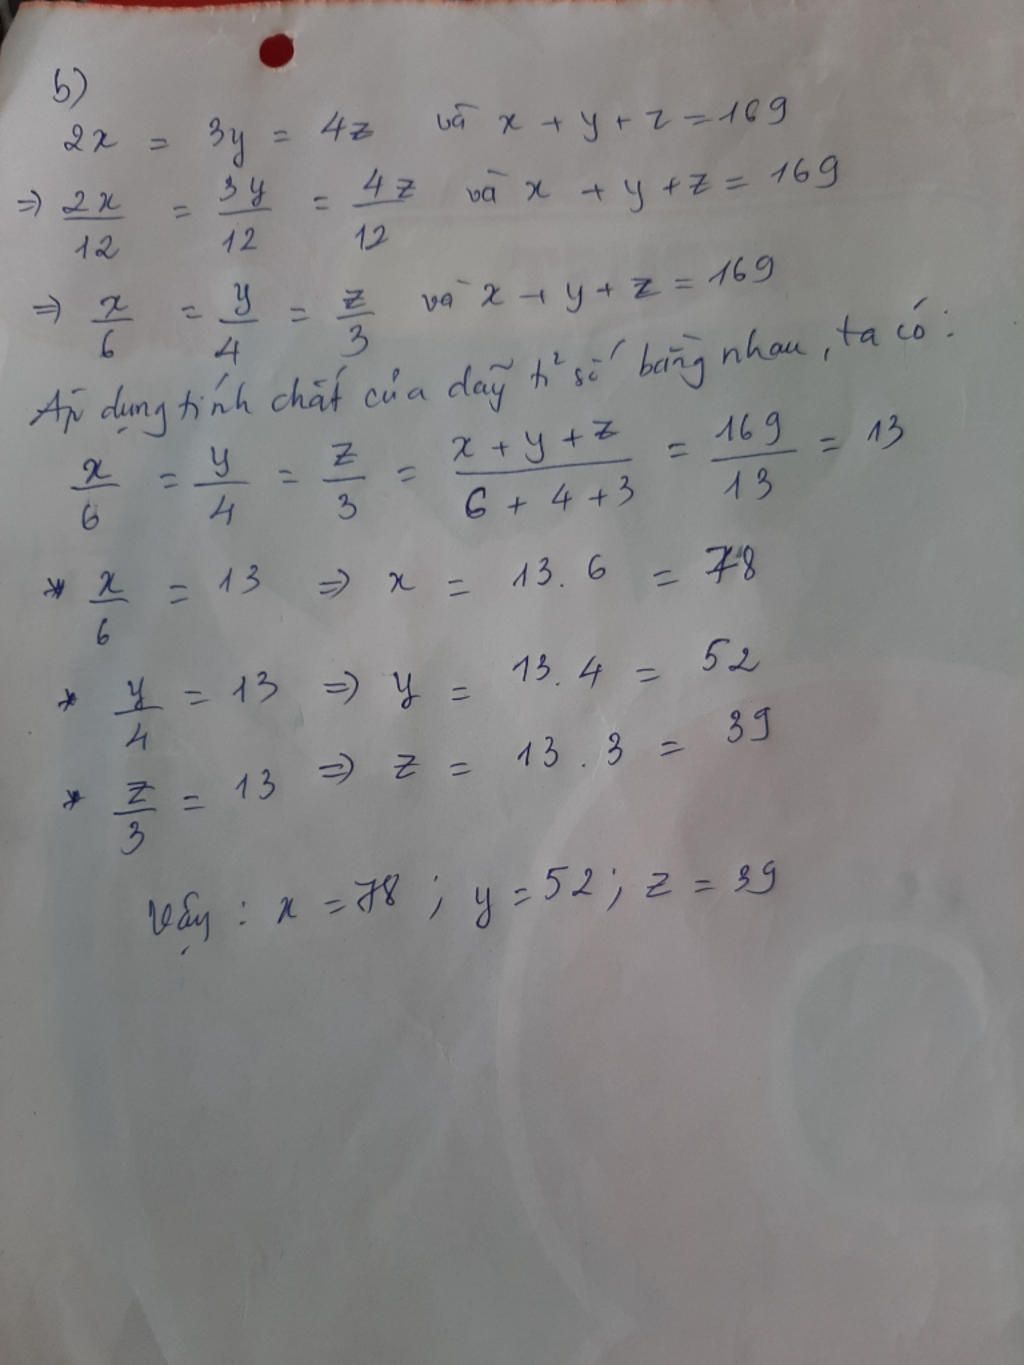 b)
2x = 3y = 4z và x + y + z = 169
=> 2x/12 = 3y/12 = 4z/12 và x + y + z = 169
=> x/6 = y/4 = z/3 và x + y + z = 169
Áp dụng tính chất của dãy tỉ số bằng nhau, ta có:
x/6 = y/4 = z/3 = x + y + z/6 + 4 + 3 = 169/13 = 13
* x/6 = 13 => x = 13.6 = 78
* y/4 = 13 => y = 13.4 = 52
* z/3 = 13 => z = 13.3 = 39
Vậy: x = 78; y = 52; z = 39